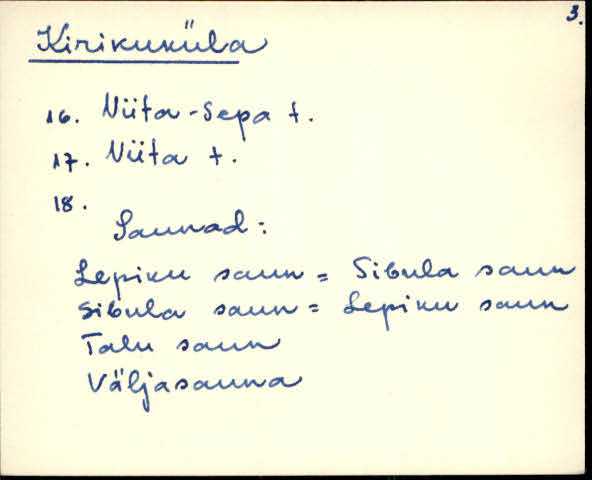 3.
Kirikuküla
16. Niita-Sepa t.
17. Niita t.
18.
Saunad:
Lepiku saun = Sibula saun
Sibula saun = Lepiku saun
Talu saun
Väljasauna